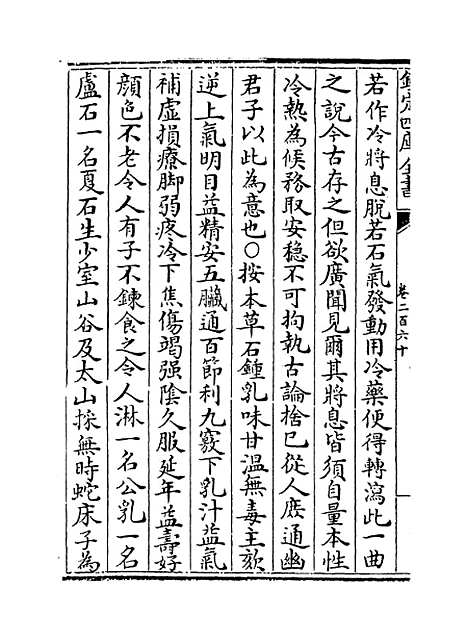 欽定四庫全書
卷二百六十
若作冷將息脫若石氣發動用冷藥便得轉瀉此一曲
之說今古存之但欲廣聞見爾其將息皆須自量本性
冷熱為候務取安穏不可拘執古論捨已從人庶通幽
君子以此為意也○按本草石鍾乳味甘溫無毒主欬
逆上氣明目益精安五臟通百節利九竅下乳汁益氣
補虛損療脚弱疼冷下焦傷竭强陰久服延年益壽好
顔色不老令人有子不鍊食之令人淋一名公乳一名
盧石一名夏石生少室山谷及太山採無時蛇床子為